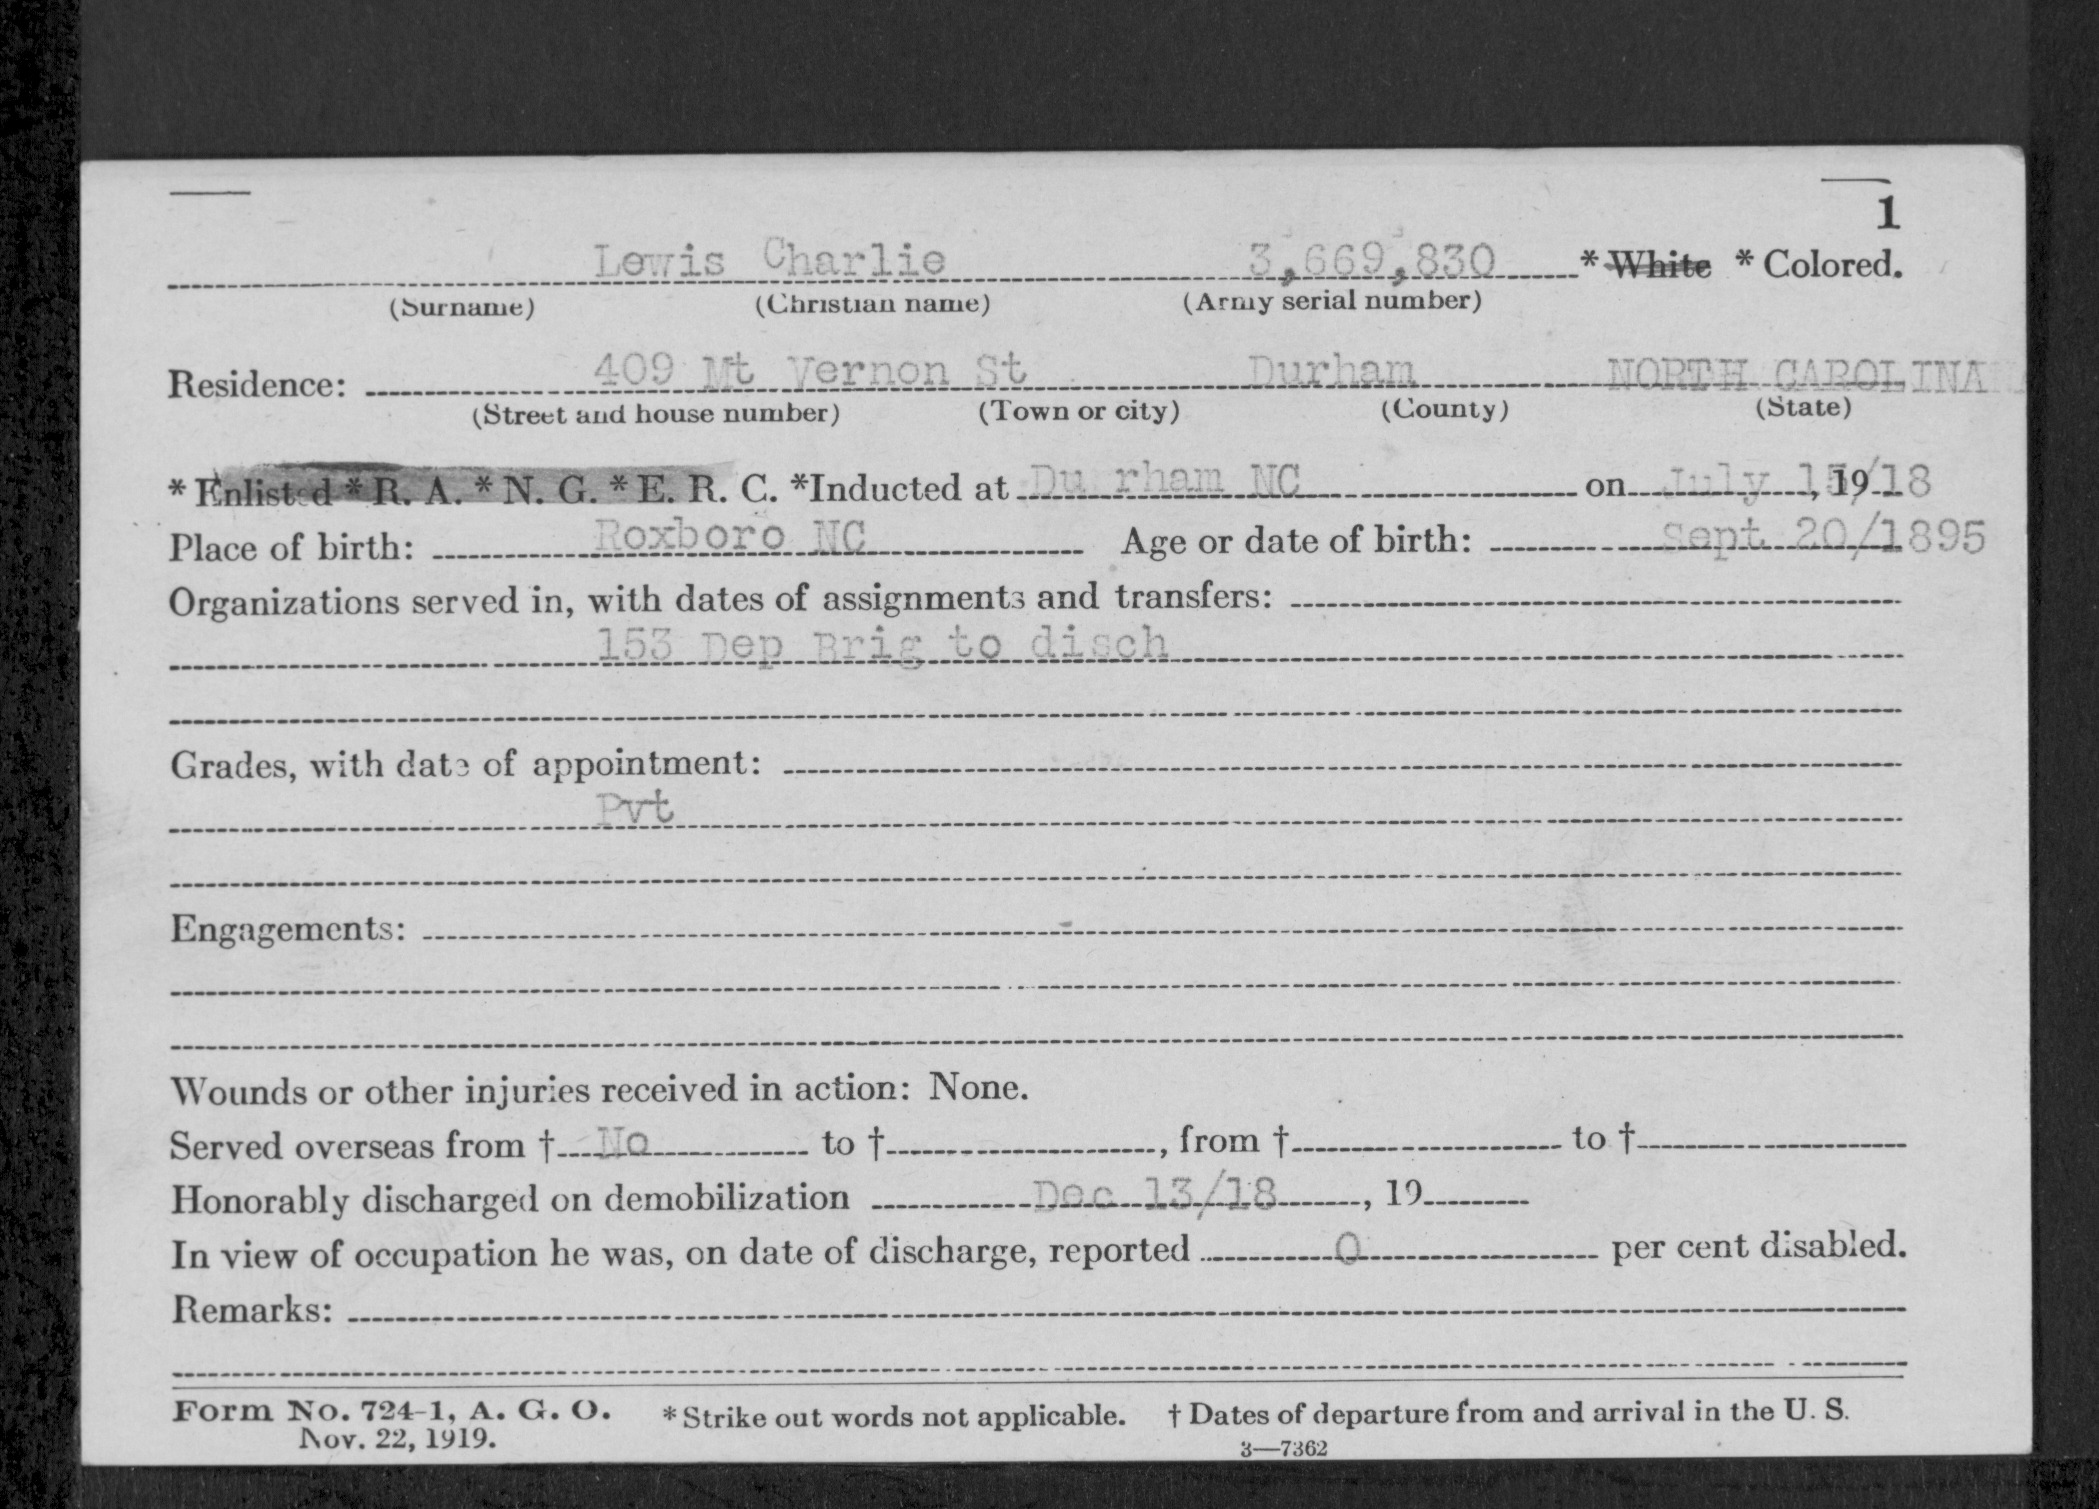 1
Lewis Charlie 3,669,830 * White * Colored.
(Surname) (Christian name) (Army serial number)
Residence: 409 Mt Vernon St Durham NORTH CAROLINA
(Street and house number) (Town or city) (County) (State)
* Enlisted * R. A. * N. G. * E. R. C. *Inducted at Du rham NC on July 15/18, 19
Place of birth: Roxboro NC Age or date of birth: Sept 20/1895
Organizations served in, with dates of assignments and transfers:
153 Dep Brig to disch
Grades, with date of appointment:
Pvt
Engagements:
Wounds or other injuries received in action: None.
Served overseas from † No to †, from † to †
Honorably discharged on demobilization Dec 13/18, 19
In view of occupation he was, on date of discharge, reported 0 per cent disabled.
Remarks:
Form No. 724-1, A. G. O. * Strike out words not applicable. † Dates of departure from and arrival in the U. S.
Nov. 22, 1919. 3—7362